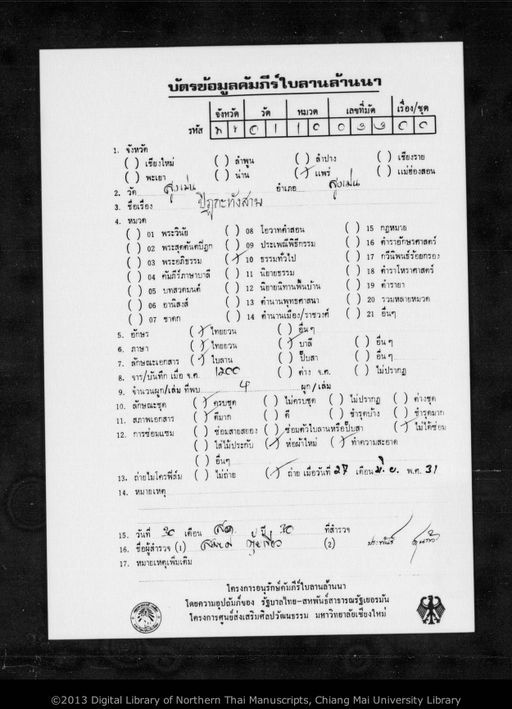 บัตรข้อมูลคัมภีร์ใบลานล้านนา
จังหวัด วัด หมวด เลขที่มัด เรื่อง/ชุด
รหัส
1. จังหวัด
( ) เชียงใหม่ ( ) ลำพูน ( ) ลำปาง ( ) เชียงราย
( ) พะเยา ( ) น่าน (/) แพร่ ( ) แม่ฮ่องสอน
2. วัด สูงเม่น อำเภอ สูงเม่น
3. ชื่อเรื่อง ปิฎกะทังสาม
4. หมวด
( ) 01 พระวินัย ( ) 08 โอวาทคำสอน ( ) 15 กฎหมาย
( ) 02 พระสุตตันตปิฎก ( ) 09 ประเพณีพิธีกรรม ( ) 16 ตำราอักษรศาสตร์
( ) 03 พระอภิธรรม (/) 10 ธรรมทั่วไป ( ) 17 กวีนิพนธ์ร้อยกรอง
( ) 04 คัมภีร์ภาษาบาลี ( ) 11 นิยายธรรม ( ) 18 ตำราโหราศาสตร์
( ) 05 บทสวดมนต์ ( ) 12 นิยายนิทานพื้นบ้าน ( ) 19 ตำรายา
( ) 06 อานิสงส์ ( ) 13 ตำนานพุทธศาสนา ( ) 20 รวมหลายหมวด
( ) 07 ชาดก ( ) 14 ตำนานเมือง/ราชวงศ์ ( ) 21 อื่นๆ
5. อักษร (/) ไทยยวน ( ) อื่นๆ
6. ภาษา (/) ไทยยวน (/) บาลี ( ) อื่นๆ
7. ลักษณะเอกสาร (/) ใบลาน ( ) ปั๊บสา ( ) อื่นๆ
8. จาร/บันทึก เมื่อ จ.ศ. 1200 ( ) ต่าง จ.ศ. ( ) ไม่ปรากฏ
9. จำนวนผูก/เล่ม ที่พบ ผูก/เล่ม
10. ลักษณะชุด (/) ครบชุด ( ) ไม่ครบชุด ( ) ไม่ปรากฏ ( ) ต่างชุด
11. สภาพเอกสาร (/) ดีมาก ( ) ดี ( ) ชำรุดบ้าง ( ) ชำรุดมาก
12. การซ่อมแซม ( ) ซ่อมสายสยอง ( ) ซ่อมตัวใบลานหรือปั๊บสา (/) ไม่ได้ซ่อม
( ) ใส่ไม้ประกับ (/) ห่อผ้าใหม่ (/) ทำความสะอาด
( ) อื่นๆ
13. ถ่ายไมโครฟิล์ม ( ) ไม่ถ่าย (/) ถ่าย เมื่อวันที่ 27 เดือน มิ.ย. พ.ศ. 31
14. หมายเหตุ
15. วันที่ 30 เดือน ปี 30 ที่สำรวจ
16. ชื่อผู้สำรวจ (1) (2)
17. หมายเหตุเพิ่มเติม
โครงการอนุรักษ์คัมภีร์ใบลานล้านนา
โดยความอุปถัมภ์ของ รัฐบาลไทย-สหพันธ์สาธารณรัฐเยอรมัน
โครงการศูนย์ส่งเสริมศิลปวัฒนธรรม มหาวิทยาลัยเชียงใหม่
©2013 Digital Library of Northern Thai Manuscripts, Chiang Mai University Library